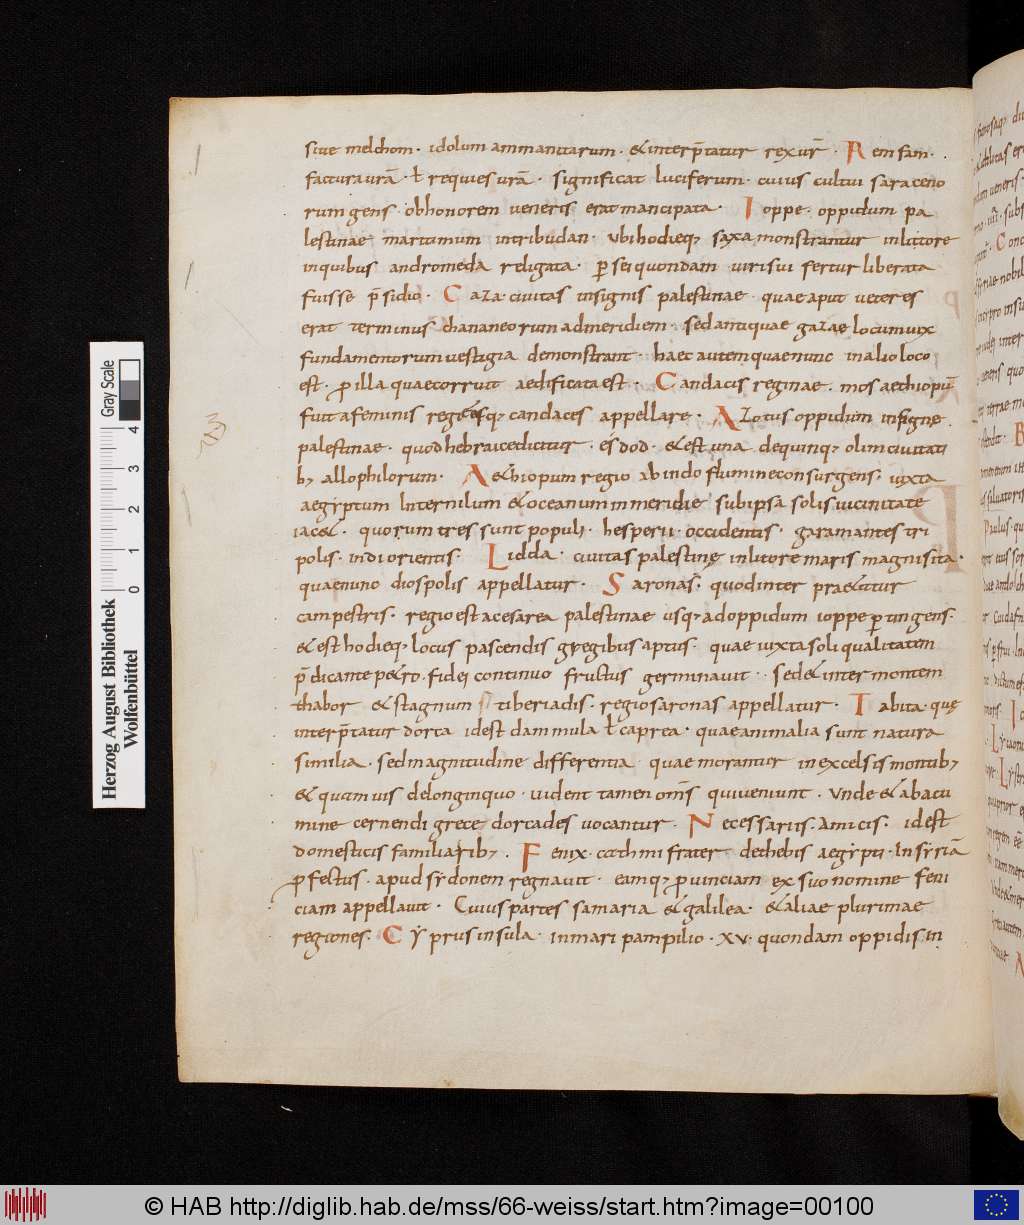 siue melchom · idolum ammanitarum · &interp̄tatur rexur̄ · Remfam ·
facturaurā · ł requiesurā · significat luciferum · cuius cultui saraceno
rumgens · obhonorem ueneris eratmancipata · Ioppe · oppidum pa
lestinae maritimum intribudan · ubihodieq; saxa monstrantur inlittore
inquibus andromeda religata · p̱seiquondam uirisui fertur liberata
fuisse p̄sidio · Gaza ciuitas insignis palestinae · quaeaput ueteres
erat terminus chananeorum admeridiem · sedantiquae gazae locumuix
fundamentorumuestigia demonstrant · haec autemquaenunc inalioloco
est · ꝓillaquaecorruit aedificataest · Candacis reginae · mos aethiopū
fuit afeminis regiesq; candaces appellare · Azotus oppidum insigne
palestinae · quodhebraicedicitur · esdod · &est una dequinq; olimciuitati
b; allophilorum · A&hiopum regio abindo flumineconsurgens · iuxta
aegyptum Internilum &oceanuminmeridie subipsa solisuicinitate
iac& · quorum tres sunt populi · hesperii · occidentis · garamantes tri
polis · indiorientis · Lidda · ciuitas palestinę inlitore maris magnisita ·
quaenunc diospolis appellatur · Saronas · quodinter pra&itur
campestris · regioestacesarea palestinae usq; adoppidum ioppe p̱tingens ·
&esthodieq; locus pascendis gregibus aptus · quae iuxtasoli qualitatem
p̄dicantep&ro · fidei continuo fructus germinauit · sed&inter montem
thabor &stagnum tiberiadis · regiosaronas appellatur · Tabita · quę
interp̄tatur dorca idest dammula ł caprea · quaeanimalia sunt natura
similia · sedmagnitudine differentia quae morantur inexcelsismontib;
&quamuis delonginquo · uident tamen om̄s quiueniunt · Unde &abacu
mine cernendi grece dorcades uocantur · Necessariis · Amicis · idest
domesticis familiarib; · Fenix · cathmi frater dethebis aegypti · Insyriā
ꝓfectus · apud sydonem regnauit · eamq; ꝓuinciam ex suo nomine feni
ciam appellauit · Cuiuspartes samaria &galilea · &aliae plurimae
regiones · Cyprusinsula · inmari pampilio · xv · quondam oppidis in
Herzog August Bibliothek
Wolfenbüttel
0 1 2 3 4
Gray Scale
© HAB http://diglib.hab.de/mss/66-weiss/start.htm?image=00100